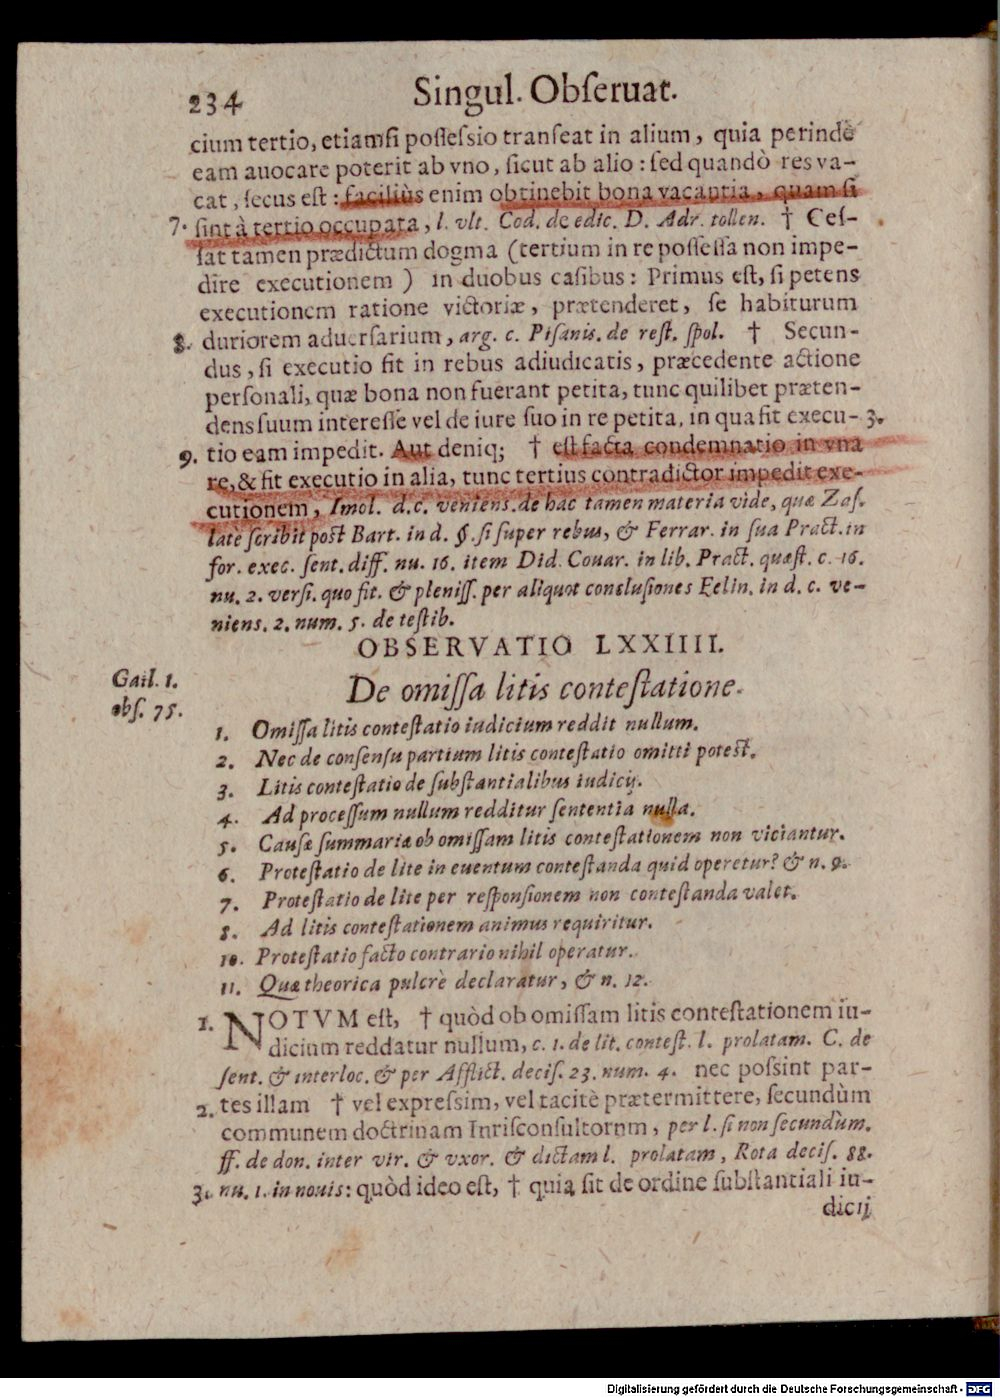 234 Singul. Obſeruat.
cium tertio, etiamſi poſſeſsio tranſeat in alium, quia perindè
eam auocare poterit ab vno, ſicut ab alio : ſed quandò res va-
cat, ſecus eſt : faciliùs enim obtinebit bona vacantia, quam ſi
7. ſint à tertio occupata, l. vlt. Cod. de edic. D. Adr. tollen. † Ceſ-
ſat tamen prædictum dogma (tertium in re poſſeſſa non impe-
dire executionem ) in duobus caſibus : Primus eſt, ſi petens
executionem ratione victoriæ, prætenderet, ſe habiturum
8. duriorem aduerſarium, arg. c. Piſanis. de reſt. ſpol. † Secun-
dus, ſi executio fit in rebus adiudicatis, præcedente actione
perſonali, quæ bona non fuerant petita, tunc quilibet præten-
dens ſuum intereſſe vel de iure ſuo in re petita, in qua fit execu- 3.
9. tio eam impedit. Aut deniq; † eſt facta condemnatio in vna
re, & fit executio in alia, tunc tertius contradictor impedit exe-
cutionem, Imol. d. c. veniens. de hac tamen materia vide, quæ Zaſ.
latè ſcribit poſt Bart. in d. §. ſi ſuper rebus, & Ferrar. in ſua Pract. in
for. exec. ſent. diff. nu. 16. item Did. Couar. in lib. Pract. quæſt. c. 16.
nu. 2. verſi. quo fit. & pleniſſ. per aliquot concluſiones Felin. in d. c. ve-
niens. 2. num. 5. de teſtib.
OBSERVATIO LXXIIII.
Gail. 1.
obſ. 75.
De omiſſa litis conteſtatione.
1. Omiſſa litis conteſtatio iudicium reddit nullum.
2. Nec de conſenſu partium litis conteſtatio omitti poteſt.
3. Litis conteſtatio de ſubſtantialibus iudicij.
4. Ad proceſſum nullum redditur ſententia nulla.
5. Cauſæ ſummariæ ob omiſſam litis conteſtationem non viciantur.
6. Proteſtatio de lite in euentum conteſtanda quid operetur? & n. 9.
7. Proteſtatio de lite per reſponſionem non conteſtanda valet.
8. Ad litis conteſtationem animus requiritur.
10. Proteſtatio facto contrario nihil operatur.
11. Quæ theorica pulcrè declaratur, & n. 12.
1. NOTVM eſt, † quòd ob omiſſam litis conteſtationem iu-
dicium reddatur nullum, c. 1. de lit. conteſt. l. prolatam. C. de
ſent. & interloc. & per Afflict. deciſ. 23. num. 4. nec poſsint par-
2. tes illam † vel expreſsim, vel tacitè prætermittere, ſecundùm
communem doctrinam Iuriſconſultorum, per l. ſi non ſecundùm.
ff. de don. inter vir. & vxor. & dictam l. prolatam, Rota deciſ. 88.
3. nu. 1. in nouis: quòd ideo eſt, † quia ſit de ordine ſubſtantiali iu-
dicij
Digitalisierung gefördert durch die Deutsche Forschungsgemeinschaft - DFG